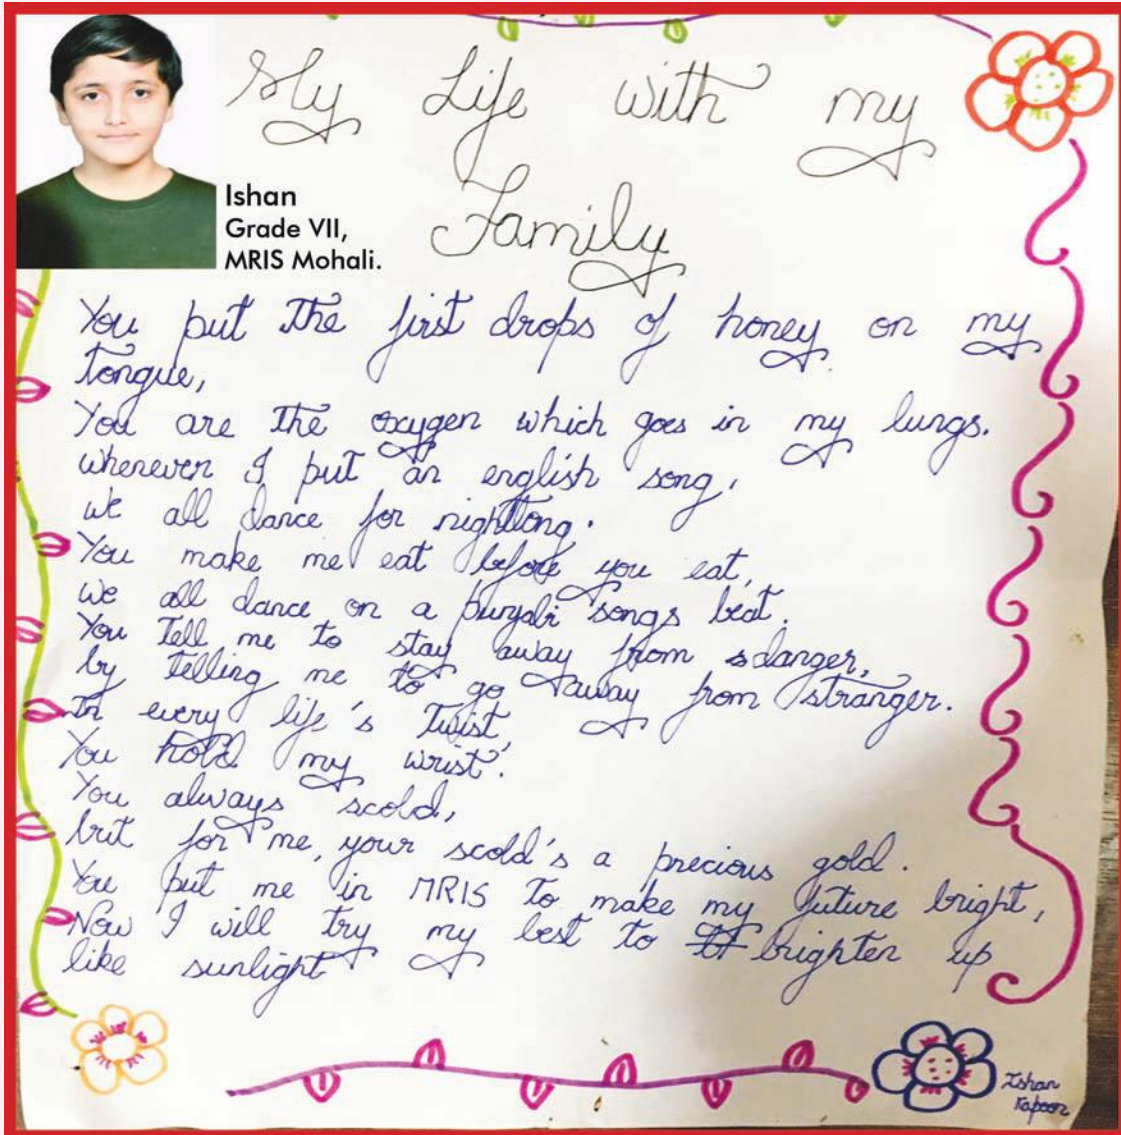 My Life with my
Family
Ishan
Grade VII,
MRIS Mohali.
You put the first drops of honey on my
tongue,
You are the oxygen which goes in my lungs.
whenever I put an english song,
we all dance for nightlong.
You make me eat before you eat,
we all dance on a punjabi songs beat.
You tell me to stay away from danger,
by telling me to go away from stranger.
In every life's twist,
You hold my wrist.
You always scold,
but for me, your scold's a precious gold.
You put me in MRIS to make my future bright,
Now I will try my best to brighten up
like sunlight
Ishan
Kapoor